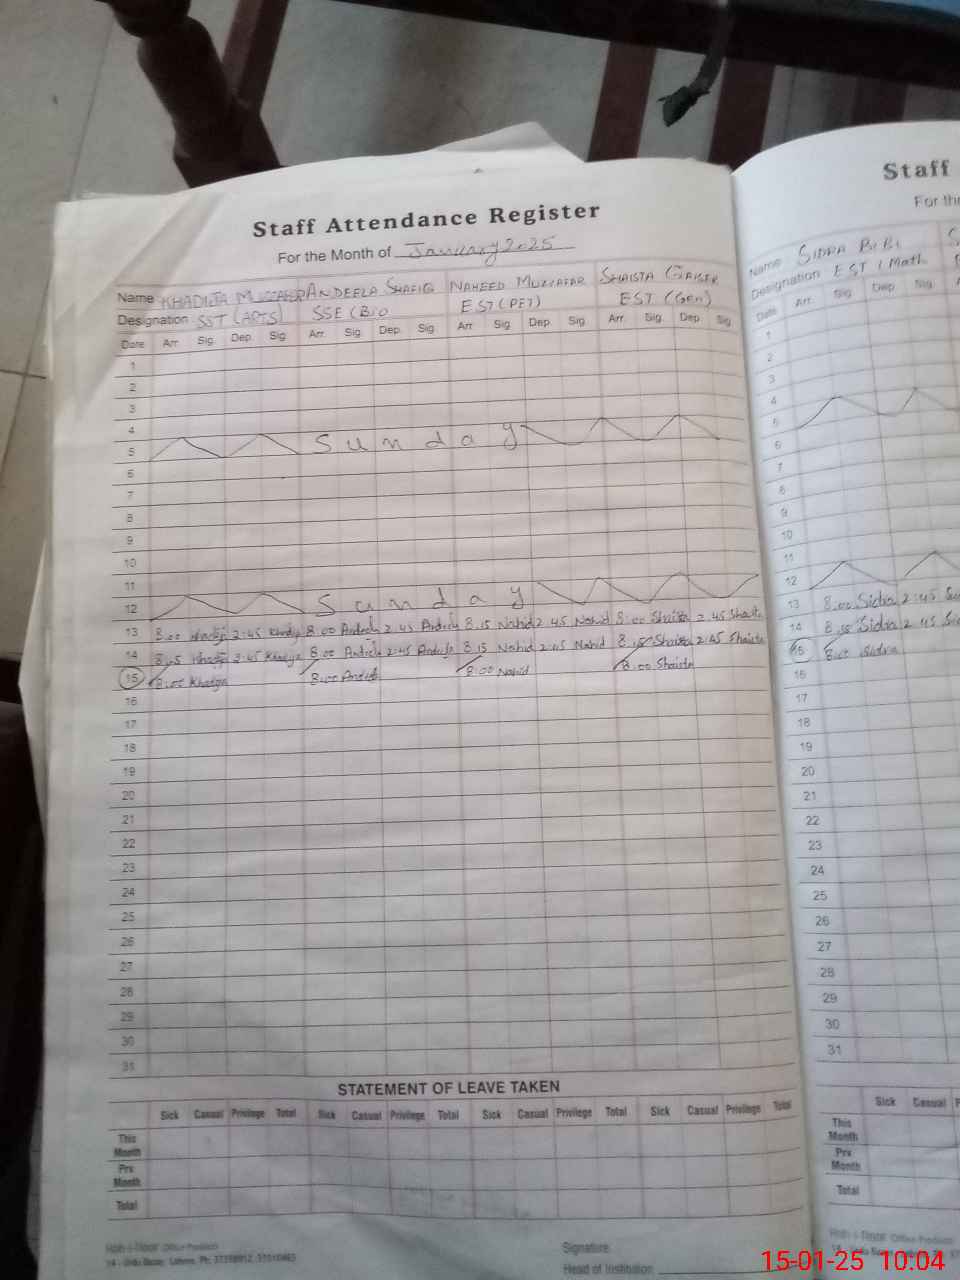 Staff Attendance Register
For the Month of January 2025
Name KHADIJA MUZZAFER ANDEELA SHAFIQ NAHEED MUZZAFAR SHAISTA QAISER
Designation SST (ARTS) SSE (Bio EST (PET) EST (Gen)
Date Arr. Sig. Dep. Sig. Arr. Sig. Dep. Sig. Arr. Sig. Dep. Sig. Arr. Sig. Dep. Sig.
1
2
3
4
5 Sunday
6
7
8
9
10
11
12 Sunday
13 8:00 2:45 8:00 2:45 8:15 Nahid 2:45 Nahid 8:00 Shaista 2:45 Shaista
14 8:15 2:45 8:00 2:45 8:15 Nahid 2:45 Nahid 8:15 Shaista 2:45 Shaista
15 8:00 8:00 8:00 Nahid 8:00 Shaista
16
17
18
19
20
21
22
23
24
25
26
27
28
29
30
31
STATEMENT OF LEAVE TAKEN
Sick Casual Privilege Total Sick Casual Privilege Total Sick Casual Privilege Total Sick Casual Privilege Total
This Month
Prv Month
Total
Signature
Head of Institution
Staff
For the
Name SIDRA BIBI
Designation EST (Math
Date Arr. Sig. Dep. Sig.
1
2
3
4
5
6
7
8
9
10
11
12
13 8:00 Sidra 2:45
14 8:15 Sidra 2:45
15 8:00 Sidra
16
17
18
19
20
21
22
23
24
25
26
27
28
29
30
31
Sick Casual
This Month
Prv Month
Total
15-01-25 10:04